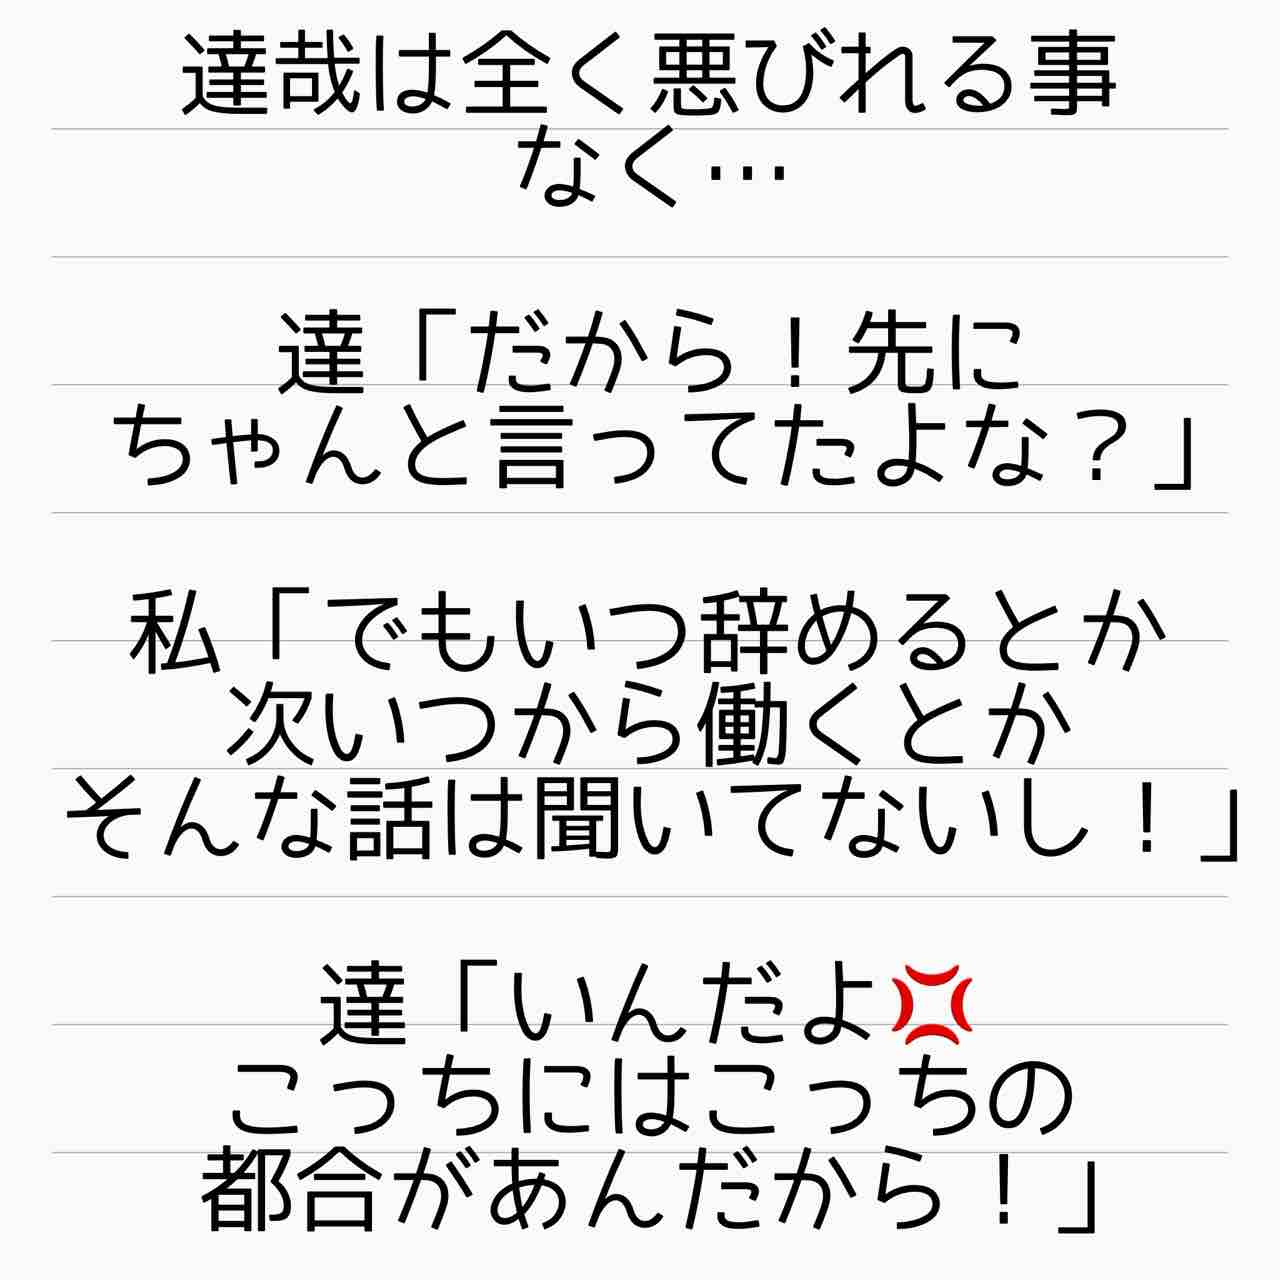 達哉は全く悪びれる事
なく…
達「だから！先に
ちゃんと言ってたよな？」
私「でもいつ辞めるとか
次いつから働くとか
そんな話は聞いてないし！」
達「いんだよ💢
こっちにはこっちの
都合があんだから！」